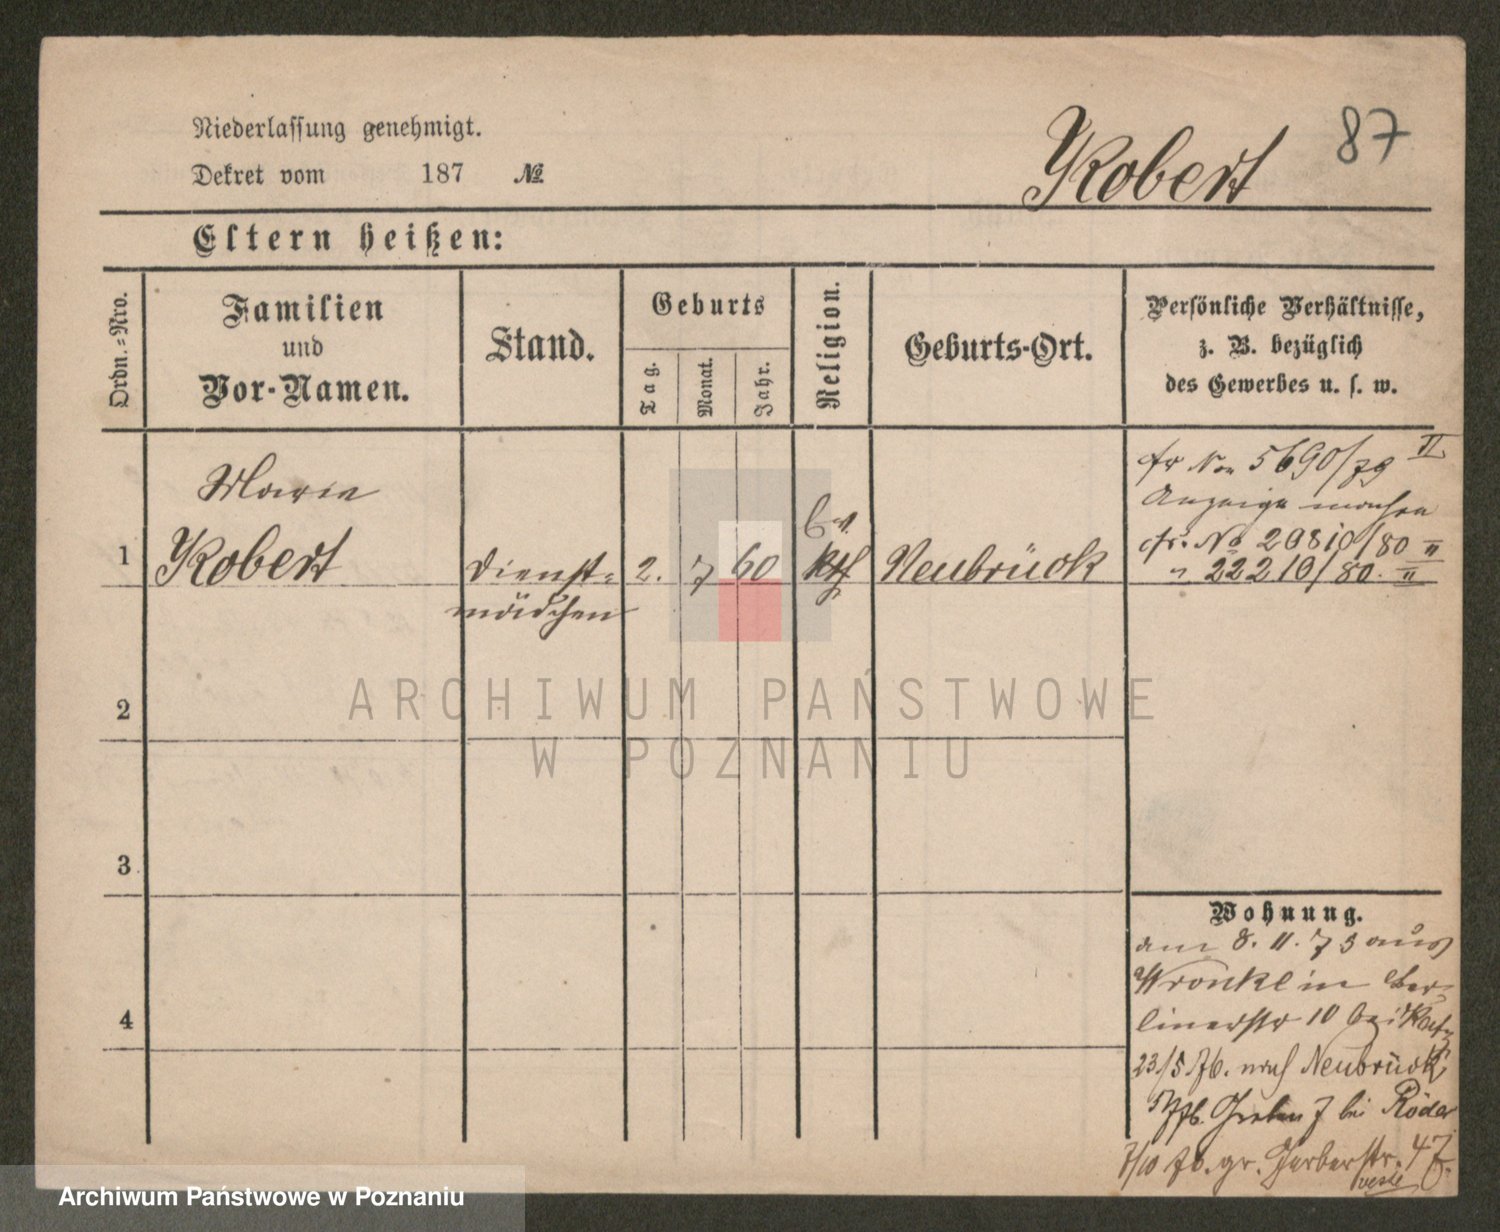 Niederlassung genehmigt.
Dekret vom 187 №
Robert 87
Eltern heißen:
Ordn.-Nro.
Familien
und
Vor-Namen.
Stand.
Geburts
Tag.
Monat.
Jahr.
Religion.
Geburts-Ort.
Persönliche Verhältnisse,
z. B. bezüglich
des Gewerbes u. s. w.
1
Marie
Robert
Dienst-
mädchen
2. 7 60
kth
Neubrück
cfr No 5690/79 II
Anzeige machen
cfr. No 20810/80 II
" 22210/80. II
2
3
4
Wohnung.
am 8. 11. 73 aus
Wronke in Ber-
linerstr 10 bei
23/5 76. nach Neubrück
7 bei Röder
7/10 76. gr. Gerberstr. 47.
ARCHIWUM PAŃSTWOWE
W POZNANIU
Archiwum Państwowe w Poznaniu